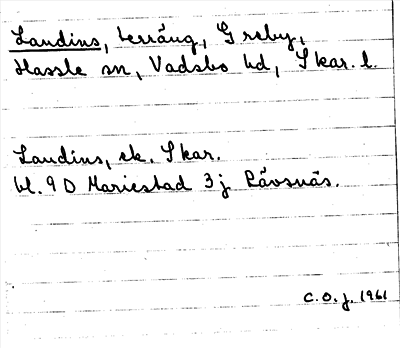 Laudins, terräng, Greby,
Hassle sn, Vadsbo hd, Skar. l.
Laudins, ek. Skar.
bl. 9 D Mariestad 3 j Låvsnäs.
C.O.J. 1961